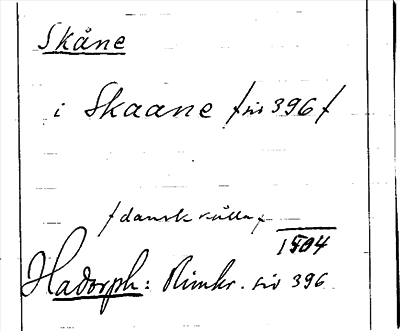 Skåne
i Skaane /siv 396/
/dansk källa/
1504
Hadorph: Rimkr. siv 396.